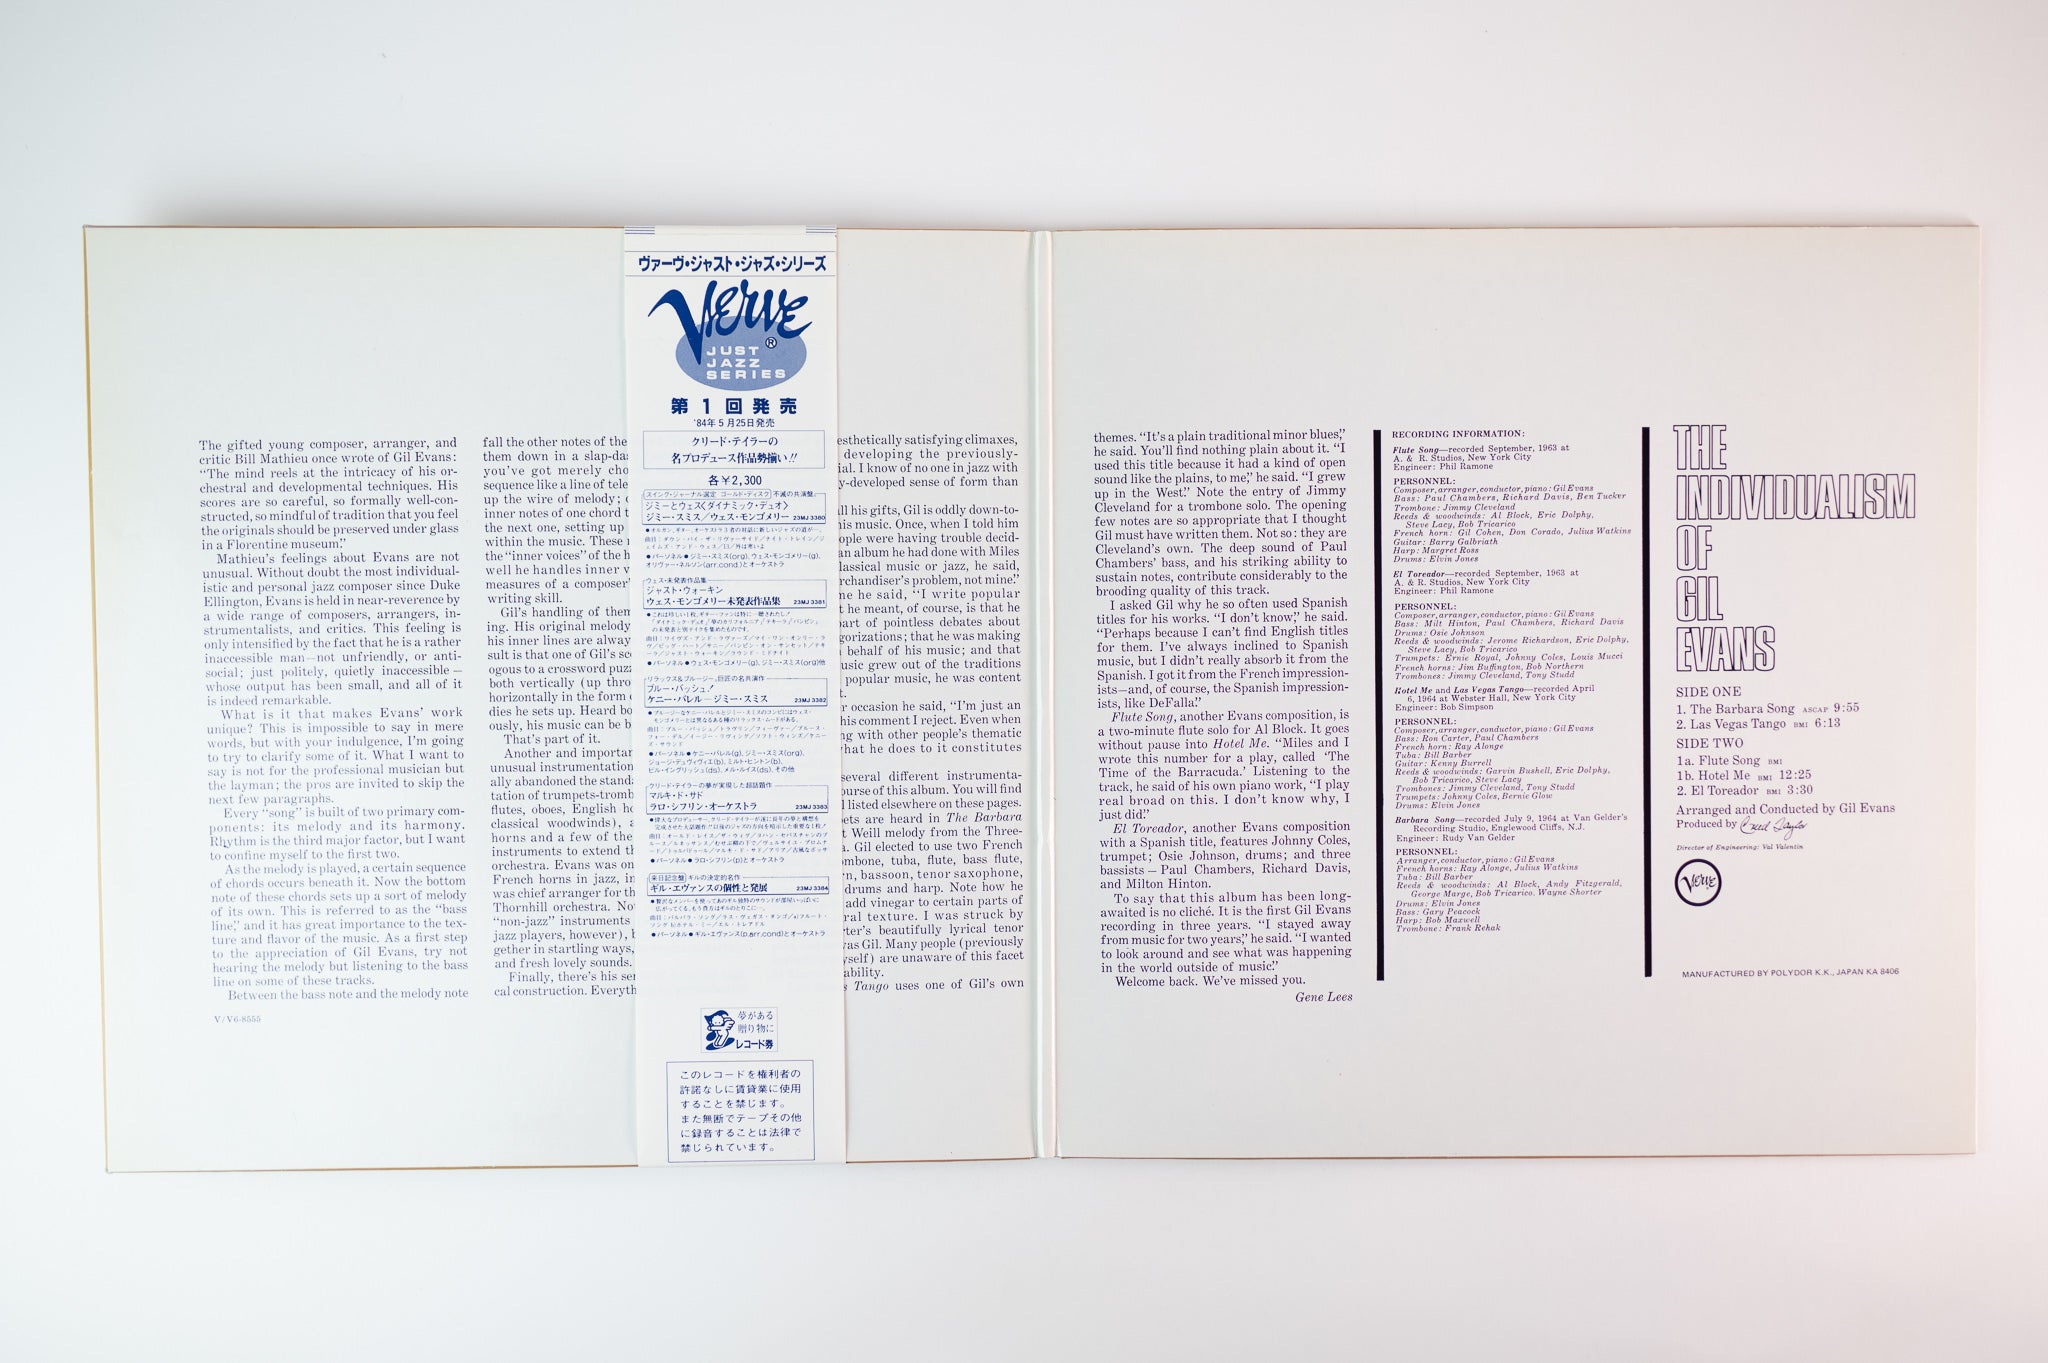 The gifted young composer, arranger, and
critic Bill Mathieu once wrote of Gil Evans:
“The mind reels at the intricacy of his or-
chestral and developmental techniques. His
scores are so careful, so formally well-con-
structed, so mindful of tradition that you feel
the originals should be preserved under glass
in a Florentine museum.”
Mathieu's feelings about Evans are not
unusual. Without doubt the most individual-
istic and personal jazz composer since Duke
Ellington, Evans is held in near-reverence by
a wide range of composers, arrangers, in-
strumentalists, and critics. This feeling is
only intensified by the fact that he is a rather
inaccessible man—not unfriendly, or anti-
social; just politely, quietly inaccessible—
whose output has been small, and all of it
is indeed remarkable.
What is it that makes Evans' work
unique? This is impossible to say in mere
words, but with your indulgence, I'm going
to try to clarify some of it. What I want to
say is not for the professional musician but
the layman; the pros are invited to skip the
next few paragraphs.
Every “song” is built of two primary com-
ponents: its melody and its harmony.
Rhythm is the third major factor, but I want
to confine myself to the first two.
As the melody is played, a certain sequence
of chords occurs beneath it. Now the bottom
note of these chords sets up a sort of melody
of its own. This is referred to as the “bass
line,” and it has great importance to the tex-
ture and flavor of the music. As a first step
to the appreciation of Gil Evans, try not
hearing the melody but listening to the bass
line on some of these tracks.
Between the bass note and the melody note
V/V6-8555
fall the other notes of the
them down in a slap-das
you've got merely cho
sequence like a line of tele
up the wire of melody; o
inner notes of one chord t
the next one, setting up
within the music. These n
the “inner voices” of the h
well he handles inner v
measures of a composer'
writing skill.
Gil's handling of them
ing. His original melody
his inner lines are alway
sult is that one of Gil's sco
ogous to a crossword puzz
both vertically (up throu
horizontally in the form o
dies he sets up. Heard bo
ously, his music can be b
That's part of it.
Another and importan
unusual instrumentation
ally abandoned the stand
tation of trumpets-tromb
flutes, oboes, English ho
classical woodwinds), a
horns and a few of the
instruments to extend th
orchestra. Evans was on
French horns in jazz, in
was chief arranger for th
Thornhill orchestra. No
“non-jazz” instruments
jazz players, however), b
gether in startling ways,
and fresh lovely sounds.
Finally, there's his sen
cal construction. Everyth
ヴァーヴ・ジャスト・ジャズ・シリーズ
Verve
®
JUST
JAZZ
SERIES
第1回発売
'84年5月25日発売
クリード・テイラーの
名プロデュース作品勢揃い!!
各￥2,300
スイング・ジャーナル選定 ゴールド・ディスク 不滅の共演盤
ジミーとウェス〈ダイナミック・デュオ〉
ジミー・スミス／ウェス・モンゴメリー 23MJ 3380
●パーソネル●ジミー・スミス(org), ウェス・モンゴメリー(g),
オリヴァー・ネルソン(arr.cond)とオーケストラ
ウェス・未発表作品集
ジャスト・ウォーキン
ウェス・モンゴメリー未発表作品集 23MJ 3381
●パーソネル●ウェス・モンゴメリー(g), ジミー・スミス(org)他
リラックス&ブルージー, 巨匠の名共演作
ブルー・バッシュ!
ケニー・バレル―ジミー・スミス 23MJ 3382
●パーソネル●ケニー・バレル(g), ジミー・スミス(org),
ジョージ・デュヴィヴィエ(b), ミルト・ヒントン(b),
ビル・イングリッシュ(ds), メル・ルイス(ds), その他
クリード・テイラーの夢が実現した超話題作
マルキ・ド・サド
ラロ・シフリン・オーケストラ 23MJ 3383
●パーソネル●ラロ・シフリン(p)とオーケストラ
来日記念盤 ギルの決定的名作
ギル・エヴァンスの個性と発展 23MJ 3384
●パーソネル●ギル・エヴァンス(p.arr.cond)とオーケストラ
夢がある
贈り物に
レコード券
このレコードを権利者の
許諾なしに賃貸業に使用
することを禁じます。
また無断でテープその他
に録音することは法律で
禁じられています。
esthetically satisfying climaxes,
developing the previously-
ial. I know of no one in jazz with
y-developed sense of form than
ll his gifts, Gil is oddly down-to-
his music. Once, when I told him
ople were having trouble decid-
an album he had done with Miles
lassical music or jazz, he said,
rchandiser's problem, not mine.”
ne he said, “I write popular
t he meant, of course, is that he
part of pointless debates about
gorizations; that he was making
behalf of his music; and that
usic grew out of the traditions
popular music, he was content
t.
r occasion he said, “I'm just an
his comment I reject. Even when
ng with other people's thematic
hat he does to it constitutes
several different instrumenta-
ourse of this album. You will find
l listed elsewhere on these pages.
ets are heard in The Barbara
t Weill melody from the Three-
. Gil elected to use two French
mbone, tuba, flute, bass flute,
n, bassoon, tenor saxophone,
drums and harp. Note how he
add vinegar to certain parts of
ral texture. I was struck by
rter's beautifully lyrical tenor
was Gil. Many people (previously
yself) are unaware of this facet
ability.
s Tango uses one of Gil's own
themes. “It's a plain traditional minor blues,”
he said. You'll find nothing plain about it. “I
used this title because it had a kind of open
sound like the plains, to me,” he said. “I grew
up in the West.” Note the entry of Jimmy
Cleveland for a trombone solo. The opening
few notes are so appropriate that I thought
Gil must have written them. Not so: they are
Cleveland's own. The deep sound of Paul
Chambers' bass, and his striking ability to
sustain notes, contribute considerably to the
brooding quality of this track.
I asked Gil why he so often used Spanish
titles for his works. “I don't know,” he said.
“Perhaps because I can't find English titles
for them. I've always inclined to Spanish
music, but I didn't really absorb it from the
Spanish. I got it from the French impression-
ists—and, of course, the Spanish impression-
ists, like DeFalla.”
Flute Song, another Evans composition, is
a two-minute flute solo for Al Block. It goes
without pause into Hotel Me. “Miles and I
wrote this number for a play, called ‘The
Time of the Barracuda.’ Listening to the
track, he said of his own piano work, “I play
real broad on this. I don't know why, I
just did.”
El Toreador, another Evans composition
with a Spanish title, features Johnny Coles,
trumpet; Osie Johnson, drums; and three
bassists — Paul Chambers, Richard Davis,
and Milton Hinton.
To say that this album has been long-
awaited is no cliché. It is the first Gil Evans
recording in three years. “I stayed away
from music for two years,” he said. “I wanted
to look around and see what was happening
in the world outside of music.”
Welcome back. We've missed you.
Gene Lees
RECORDING INFORMATION:
Flute Song—recorded September, 1963 at
A. & R. Studios, New York City
Engineer: Phil Ramone
PERSONNEL:
Composer, arranger, conductor, piano: Gil Evans
Bass: Paul Chambers, Richard Davis, Ben Tucker
Trombone: Jimmy Cleveland
Reeds & woodwinds: Al Block, Eric Dolphy,
Steve Lacy, Bob Tricarico
French horn: Gil Cohen, Don Corado, Julius Watkins
Guitar: Barry Galbriath
Harp: Margret Ross
Drums: Elvin Jones
El Toreador—recorded September, 1963 at
A. & R. Studios, New York City
Engineer: Phil Ramone
PERSONNEL:
Composer, arranger, conductor, piano: Gil Evans
Bass: Milt Hinton, Paul Chambers, Richard Davis
Drums: Osie Johnson
Reeds & woodwinds: Jerome Richardson, Eric Dolphy,
Steve Lacy, Bob Tricarico
Trumpets: Ernie Royal, Johnny Coles, Louis Mucci
French horns: Jim Buffington, Bob Northern
Trombones: Jimmy Cleveland, Tony Studd
Hotel Me and Las Vegas Tango—recorded April
6, 1964 at Webster Hall, New York City
Engineer: Bob Simpson
PERSONNEL:
Composer, arranger, conductor, piano: Gil Evans
Bass: Ron Carter, Paul Chambers
French horn: Ray Alonge
Tuba: Bill Barber
Guitar: Kenny Burrell
Reeds & woodwinds: Garvin Bushell, Eric Dolphy,
Bob Tricarico, Steve Lacy
Trombones: Jimmy Cleveland, Tony Studd
Trumpets: Johnny Coles, Bernie Glow
Drums: Elvin Jones
Barbara Song—recorded July 9, 1964 at Van Gelder's
Recording Studio, Englewood Cliffs, N.J.
Engineer: Rudy Van Gelder
PERSONNEL:
Arranger, conductor, piano: Gil Evans
French horns: Ray Alonge, Julius Watkins
Tuba: Bill Barber
Reeds & woodwinds: Al Block, Andy Fitzgerald,
George Marge, Bob Tricarico, Wayne Shorter
Drums: Elvin Jones
Bass: Gary Peacock
Harp: Bob Maxwell
Trombone: Frank Rehak
THE
INDIVIDUALISM
OF
GIL
EVANS
SIDE ONE
1. The Barbara Song ASCAP 9:55
2. Las Vegas Tango BMI 6:13
SIDE TWO
1a. Flute Song BMI
1b. Hotel Me BMI 12:25
2. El Toreador BMI 3:30
Arranged and Conducted by Gil Evans
Produced by Creed Taylor
Director of Engineering: Val Valentin
Verve
MANUFACTURED BY POLYDOR K.K., JAPAN KA 8406